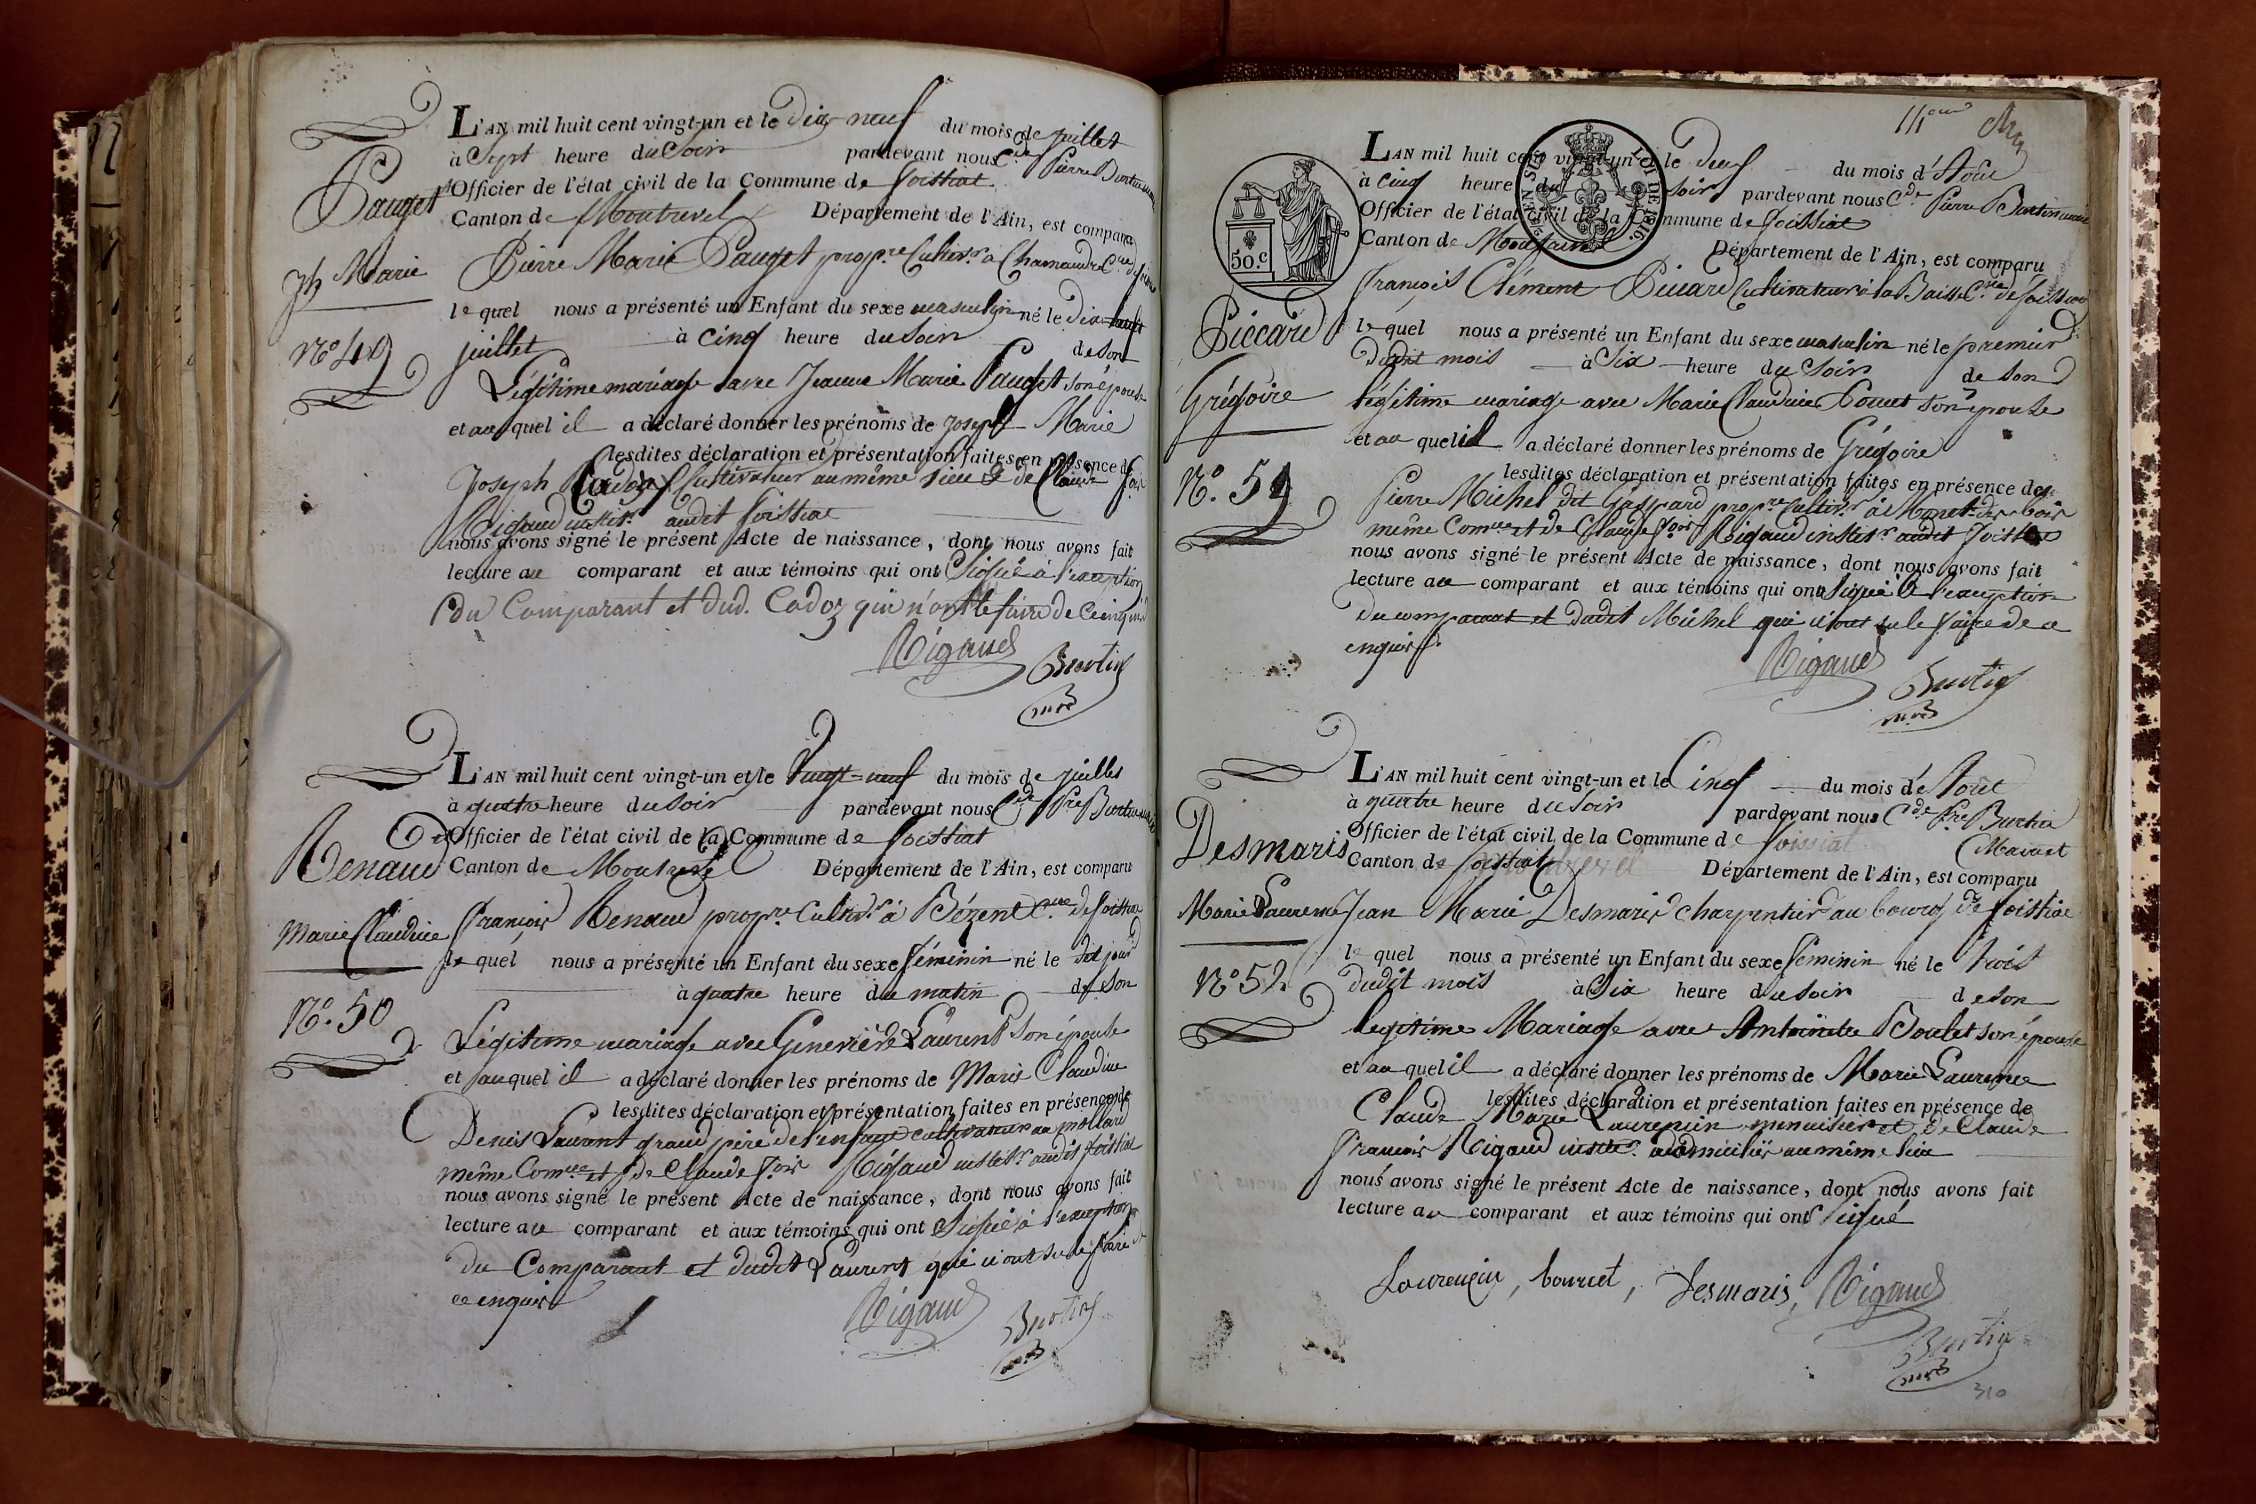 L'AN mil huit cent vingt-un et le dix neuf du mois de juillet
à Sept heure du Soir pardevant nous Cde Pierre Burtin
Officier de l'état civil de la Commune de foissiat
Canton de Montrevel Département de l'Ain, est comparu
Pauget
Pierre Marie Pauget propre Cultivr à
Jh Marie
le quel nous a présenté un Enfant du sexe masculin né le dix neuf
juillet à cinq heure du Soir de son
No 49
Légitime mariage avec Jeanne Marie Pauget son épouse
et au quel il a déclaré donner les prénoms de Joseph Marie
lesdites déclaration et présentation faites en présence de
Joseph Cadoz Cultivateur au même lieu et de Claude fois
Rigaud instr audit foissiat
nous avons signé le présent Acte de naissance, dont nous avons fait
lecture au comparant et aux témoins qui ont Signé à l'exception
du Comparant et dud. Cadoz qui n'ont le faire de ce enquis
Rigaud
Burtin
mre
L'AN mil huit cent vingt-un et le vingt-neuf du mois de juillet
à quatre heure du soir pardevant nous Cde Pre Burtin
Officier de l'état civil de la Commune de foissiat
Renaud
Canton de Montrevel Département de l'Ain, est comparu
Marie Claudine
françois Renaud propre Cultivr à Bézent Cne de foissiat
le quel nous a présenté un Enfant du sexe féminin né le dit jour
à quatre heure du matin de son
No. 50
Légitime mariage avec Genevieve Laurent son épouse
et au quel il a déclaré donner les prénoms de Marie Claudine
lesdites déclaration et présentation faites en présence de
Denis Laurent grand père de l'enfant cultivateur au mollard
même Comne et de Claude fois Rigaud instr audit foissiat
nous avons signé le présent Acte de naissance, dont nous avons fait
lecture au comparant et aux témoins qui ont Signé à l'exception
du Comparant et dudit Laurent qui n'ont su le faire de
ce enquis
Rigaud
Burtin
mre
L'AN mil huit cent vingt-un et le deux du mois d'Août
à cinq heure du soir pardevant nous Cde Pierre Burtin maire
Officier de l'état civil de la Commune de foissiat
Canton de Montrevel Département de l'Ain, est comparu
LOI DE 1816.
50.c
françois Clément Piccard Cultivateur à la Baisse Cne de foissiat
Piccard
le quel nous a présenté un Enfant du sexe masculin né le premier
dudit mois à Six heure du Soir de son
Grégoire
légitime mariage avec Marie Claudine Pomet son épouse
et au quel il a déclaré donner les prénoms de Grégoire
lesdites déclaration et présentation faites en présence de
No. 51
Pierre Michel dit Gaspard propre Cultivr à
même Comne et de Claude fois Rigaud instr audit foissiat
nous avons signé le présent Acte de naissance, dont nous avons fait
lecture au comparant et aux témoins qui ont Signé à l'exception
du comparant et dudit Michel qui n'ont su le faire de ce
enquis
Rigaud
Burtin
mre
L'AN mil huit cent vingt-un et le Cinq du mois d'Août
à quatre heure du soir pardevant nous Cde Pre Burtin
Maire
Officier de l'état civil de la Commune de foissiat
Desmaris
Canton de foissiat Département de l'Ain, est comparu
Marie Laurence
Jean Marie Desmaris charpentier au bourg de foissiat
le quel nous a présenté un Enfant du sexe féminin né le trois
No 52
dudit mois à Six heure du soir de son
legitime Mariage avec Antoinette Boulet son épouse
et au quel il a déclaré donner les prénoms de Marie Laurence
lesdites déclaration et présentation faites en présence de
Claude Marie Laurencin menuisier et de Claude
françois Rigaud instr. domiciliés au même lieu
nous avons signé le présent Acte de naissance, dont nous avons fait
lecture au comparant et aux témoins qui ont signé
Laurencin, bourcet, Desmaris, Rigaud
Burtin
mre
310